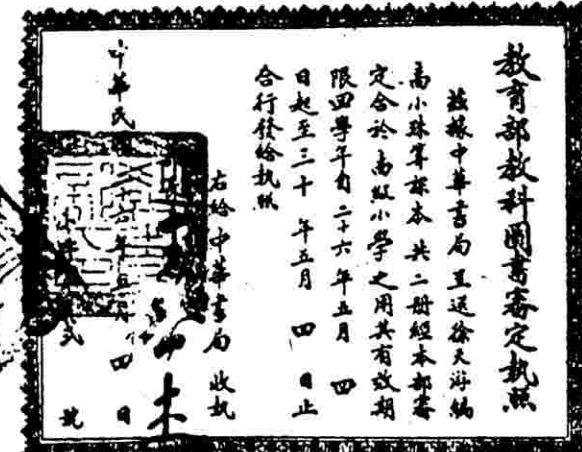 教育部教科圖書審定執照
茲據中華書局呈送徐天游編
高小珠算課本共二册經本部審
定合於高級小學之用其有效期
限四學年自二十六年五月四
日起至三十年五月四日止
合行發給執照
右給中華書局收執
中華民
年五月四日
號